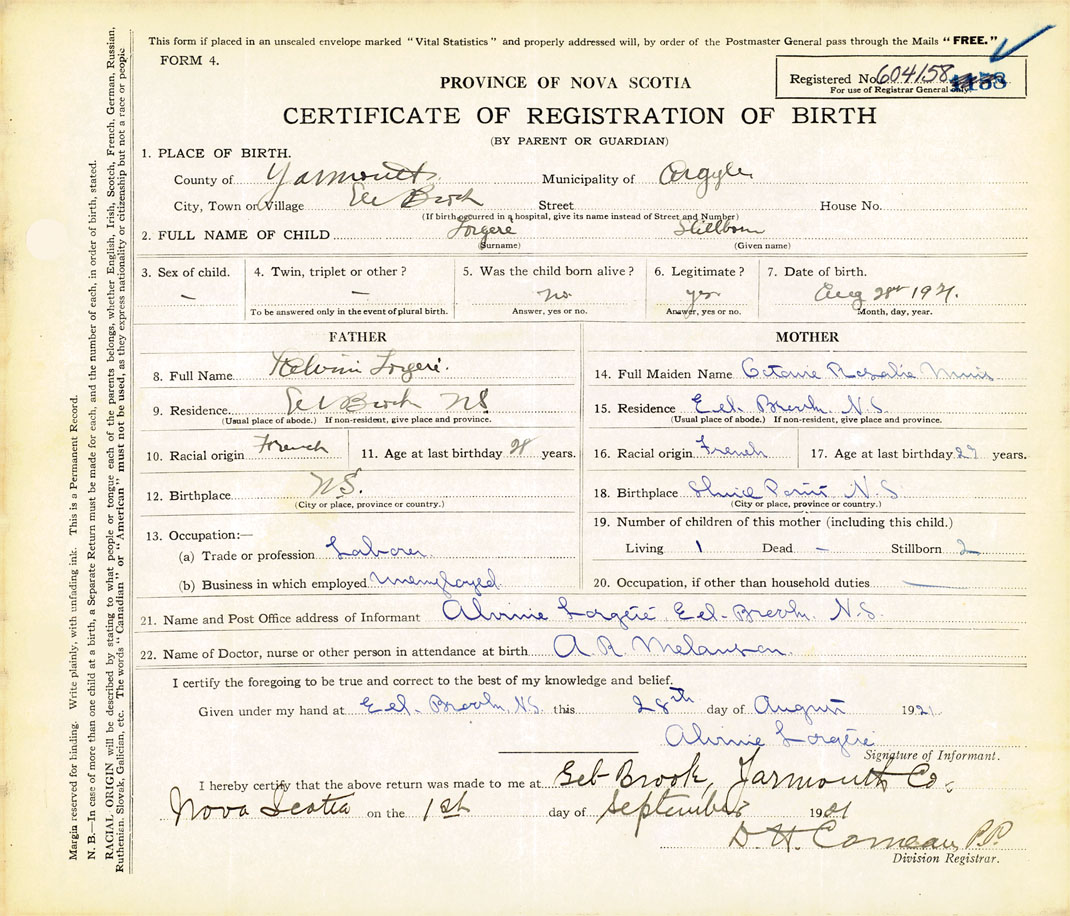 This form if placed in an unsealed envelope marked "Vital Statistics" and properly addressed will, by order of the Postmaster General pass through the Mails "FREE."
FORM 4.
Registered No. 604158
For use of Registrar General only.
PROVINCE OF NOVA SCOTIA
CERTIFICATE OF REGISTRATION OF BIRTH
(BY PARENT OR GUARDIAN)
1. PLACE OF BIRTH.
County of Yarmouth Municipality of Argyle
City, Town or Village Eel Brook Street House No.
(If birth occurred in a hospital, give its name instead of Street and Number)
2. FULL NAME OF CHILD Stillborn
(Surname) (Given name)
3. Sex of child. 4. Twin, triplet or other? 5. Was the child born alive? 6. Legitimate? 7. Date of birth.
— — no yes Aug 28th 1921.
To be answered only in the event of plural birth. Answer, yes or no. Answer, yes or no. Month, day, year.
FATHER MOTHER
8. Full Name
14. Full Maiden Name Octavie Rosalie
9. Residence Eel Brook NS
15. Residence Eel-Brook. N.S.
(Usual place of abode.) If non-resident, give place and province. (Usual place of abode.) If non-resident, give place and province.
10. Racial origin French 11. Age at last birthday 28 years.
16. Racial origin French 17. Age at last birthday 27 years.
12. Birthplace N.S.
(City or place, province or country.)
18. Birthplace N.S.
(City or place, province or country.)
13. Occupation:—
19. Number of children of this mother (including this child.)
(a) Trade or profession Laborer
Living 1 Dead – Stillborn 2
(b) Business in which employed Unemployed
20. Occupation, if other than household duties
21. Name and Post Office address of Informant Eel-Brook, N.S.
22. Name of Doctor, nurse or other person in attendance at birth A. R. Melanson.
I certify the foregoing to be true and correct to the best of my knowledge and belief.
Given under my hand at Eel-Brook, N.S. this 28th day of August 1921
Signature of Informant.
I hereby certify that the above return was made to me at Eel-Brook, Yarmouth Co.
Nova Scotia on the 1st day of September 1921
D. H. Comeau, P.P.
Division Registrar.
Margin reserved for binding. Write plainly, with unfading ink. This is a Permanent Record.
N. B.—In case of more than one child at a birth, a Separate Return must be made for each, and the number of each, in order of birth, stated.
RACIAL ORIGIN will be described by stating to what people or tongue each of the parents belongs, whether English, Irish, Scotch, French, German, Russian,
Ruthenian, Slovak, Galician, etc. The words "Canadian" or "American" must not be used, as they express nationality or citizenship but not a race or people